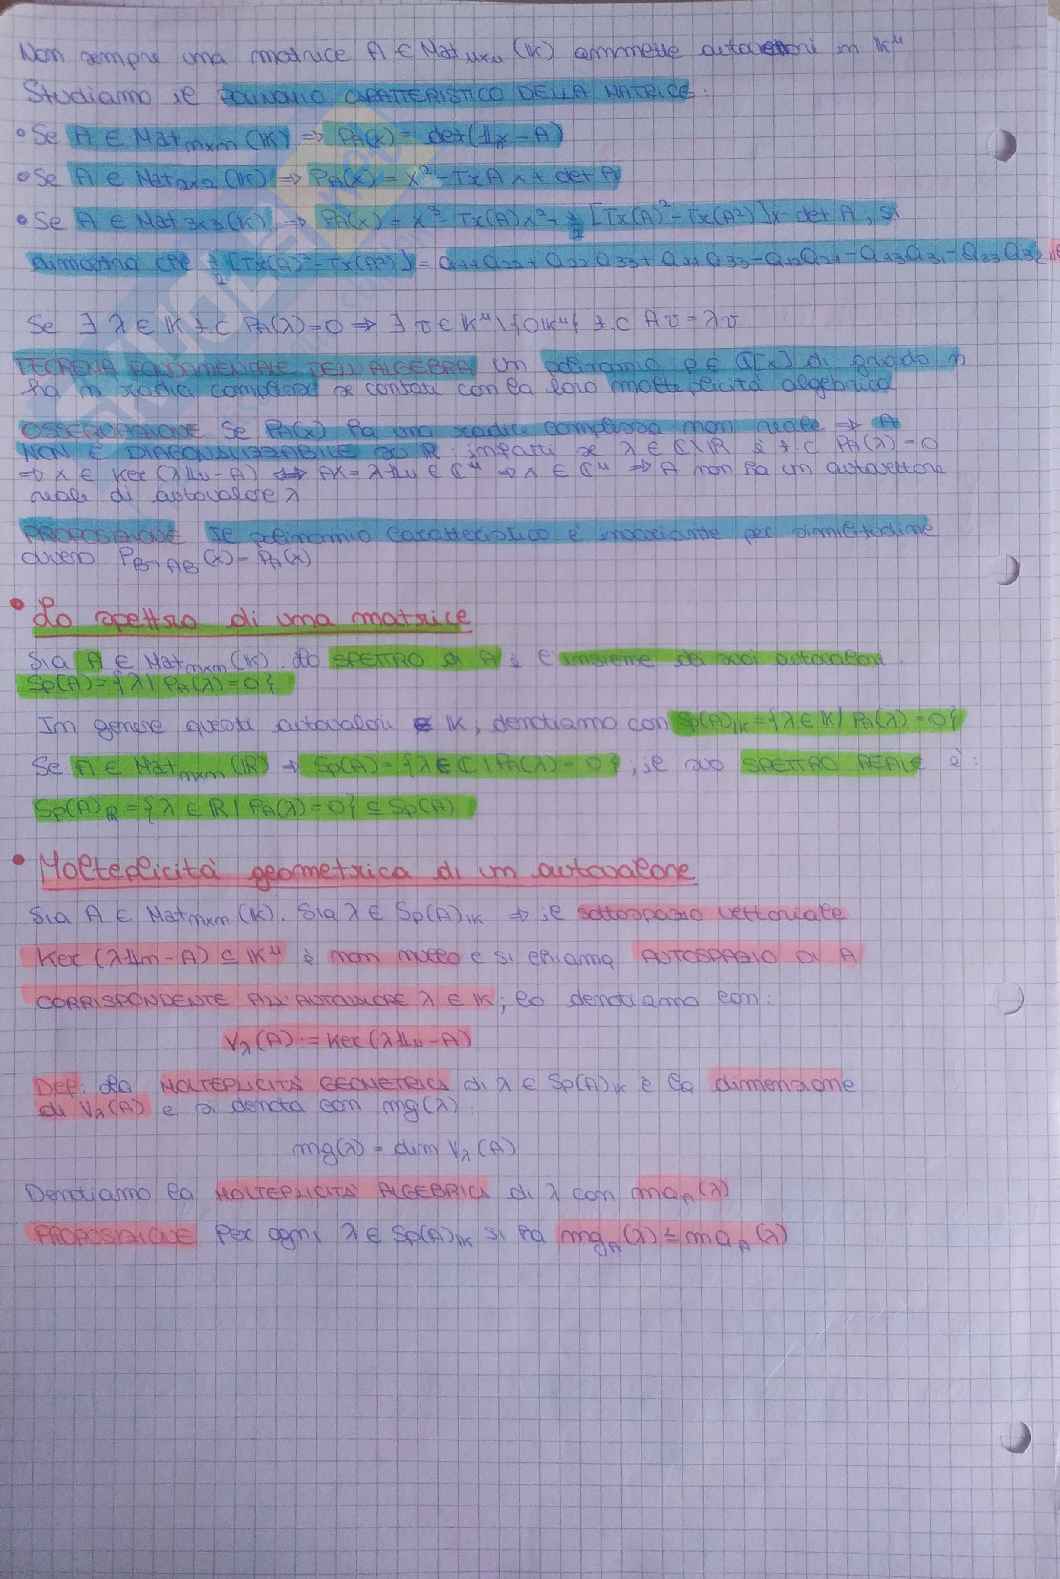 Non sempre una matrice A ∈ Mat_nxn (K) ammette autovettori in Kⁿ
Studiamo il POLINOMIO CARATTERISTICO DELLA MATRICE:
• Se A ∈ Mat_nxn (K) ⇒ P_A(x) = det(𝟙x - A)
• Se A ∈ Mat_2x2 (K) ⇒ P_A(x) = x² - Tr A x + det A
• Se A ∈ Mat_3x3 (K) ⇒ P_A(x) = x³ - Tr(A)x² + ½ [Tr(A)² - Tr(A²)]x - det A, si
dimostra che ½ [Tr(A)² - Tr(A²)] = a₁₁a₂₂ + a₂₂a₃₃ + a₁₁a₃₃ - a₁₂a₂₁ - a₁₃a₃₁ - a₂₃a₃₂
Se ∃ λ ∈ K t.c P_A(λ) = 0 ⇒ ∃ v ∈ Kⁿ \ {0_Kⁿ} t.c Av = λv
TEOREMA FONDAMENTALE DELL'ALGEBRA Un polinomio p ∈ C[x] di grado n
ha n radici complesse se contate con la loro molteplicità algebrica
OSSERVAZIONE Se P_A(x) ha una radice complessa non reale ⇒ A
NON È DIAGONALIZZABILE SU R infatti se λ ∈ C\R è t.c P_A(λ) = 0
⇒ x ∈ Ker(λ𝟙n - A) ⇔ Ax = λ𝟙n ∈ Cⁿ ⇒ x ∈ Cⁿ ⇒ A non ha un autovettore
reale di autovalore λ
PROPOSIZIONE Il polinomio caratteristico è invariante per similitudine
ovvero P_B⁻¹AB (x) = P_A(x)
• Lo spettro di una matrice
Sia A ∈ Mat_nxn (K). Lo SPETTRO di A è l'insieme dei suoi autovalori
Sp(A) = {λ | P_A(λ) = 0}
In genere questi autovalori ∈ K, denotiamo con Sp(A)_K = {λ ∈ K | P_A(λ) = 0}
Se A ∈ Mat_nxn (R) → Sp(A) = {λ ∈ C | P_A(λ) = 0}, il suo SPETTRO REALE è:
Sp(A)_R = {λ ∈ R | P_A(λ) = 0} ⊆ Sp(A)
• Molteplicità geometrica di un autovalore
Sia A ∈ Mat_nxn (K). Sia λ ∈ Sp(A)_K ⇒ il sottospazio vettoriale
Ker (λ𝟙n - A) ⊆ Kⁿ è non nullo e si chiama AUTOSPAZIO DI A
CORRISPONDENTE ALL'AUTOVALORE λ ∈ K; lo denotiamo con:
V_λ(A) := Ker(λ𝟙n - A)
Def: La MOLTEPLICITÀ GEOMETRICA di λ ∈ Sp(A)_K è la dimensione
di V_λ(A) e si denota con mg(λ)
mg(λ) = dim V_λ(A)
Denotiamo la MOLTEPLICITÀ ALGEBRICA di λ con ma_A(λ)
PROPOSIZIONE Per ogni λ ∈ Sp(A)_K si ha mg_A(λ) ≤ ma_A(λ)